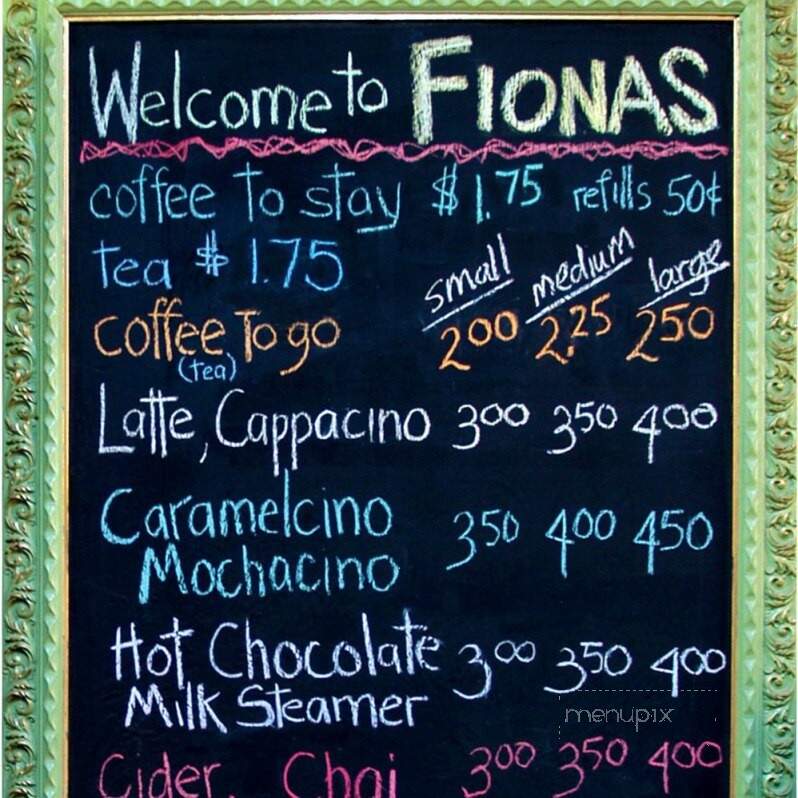 Welcome to FIONAS
coffee to stay $1.75 refills 50¢
tea $1.75
small medium large
coffee to go 200 2.25 250
(tea)
Latte, Cappacino 300 350 400
Caramelcino
Mochacino 350 400 450
Hot Chocolate 300 350 400
Milk Steamer
menupix
Cider, Chai 300 350 400